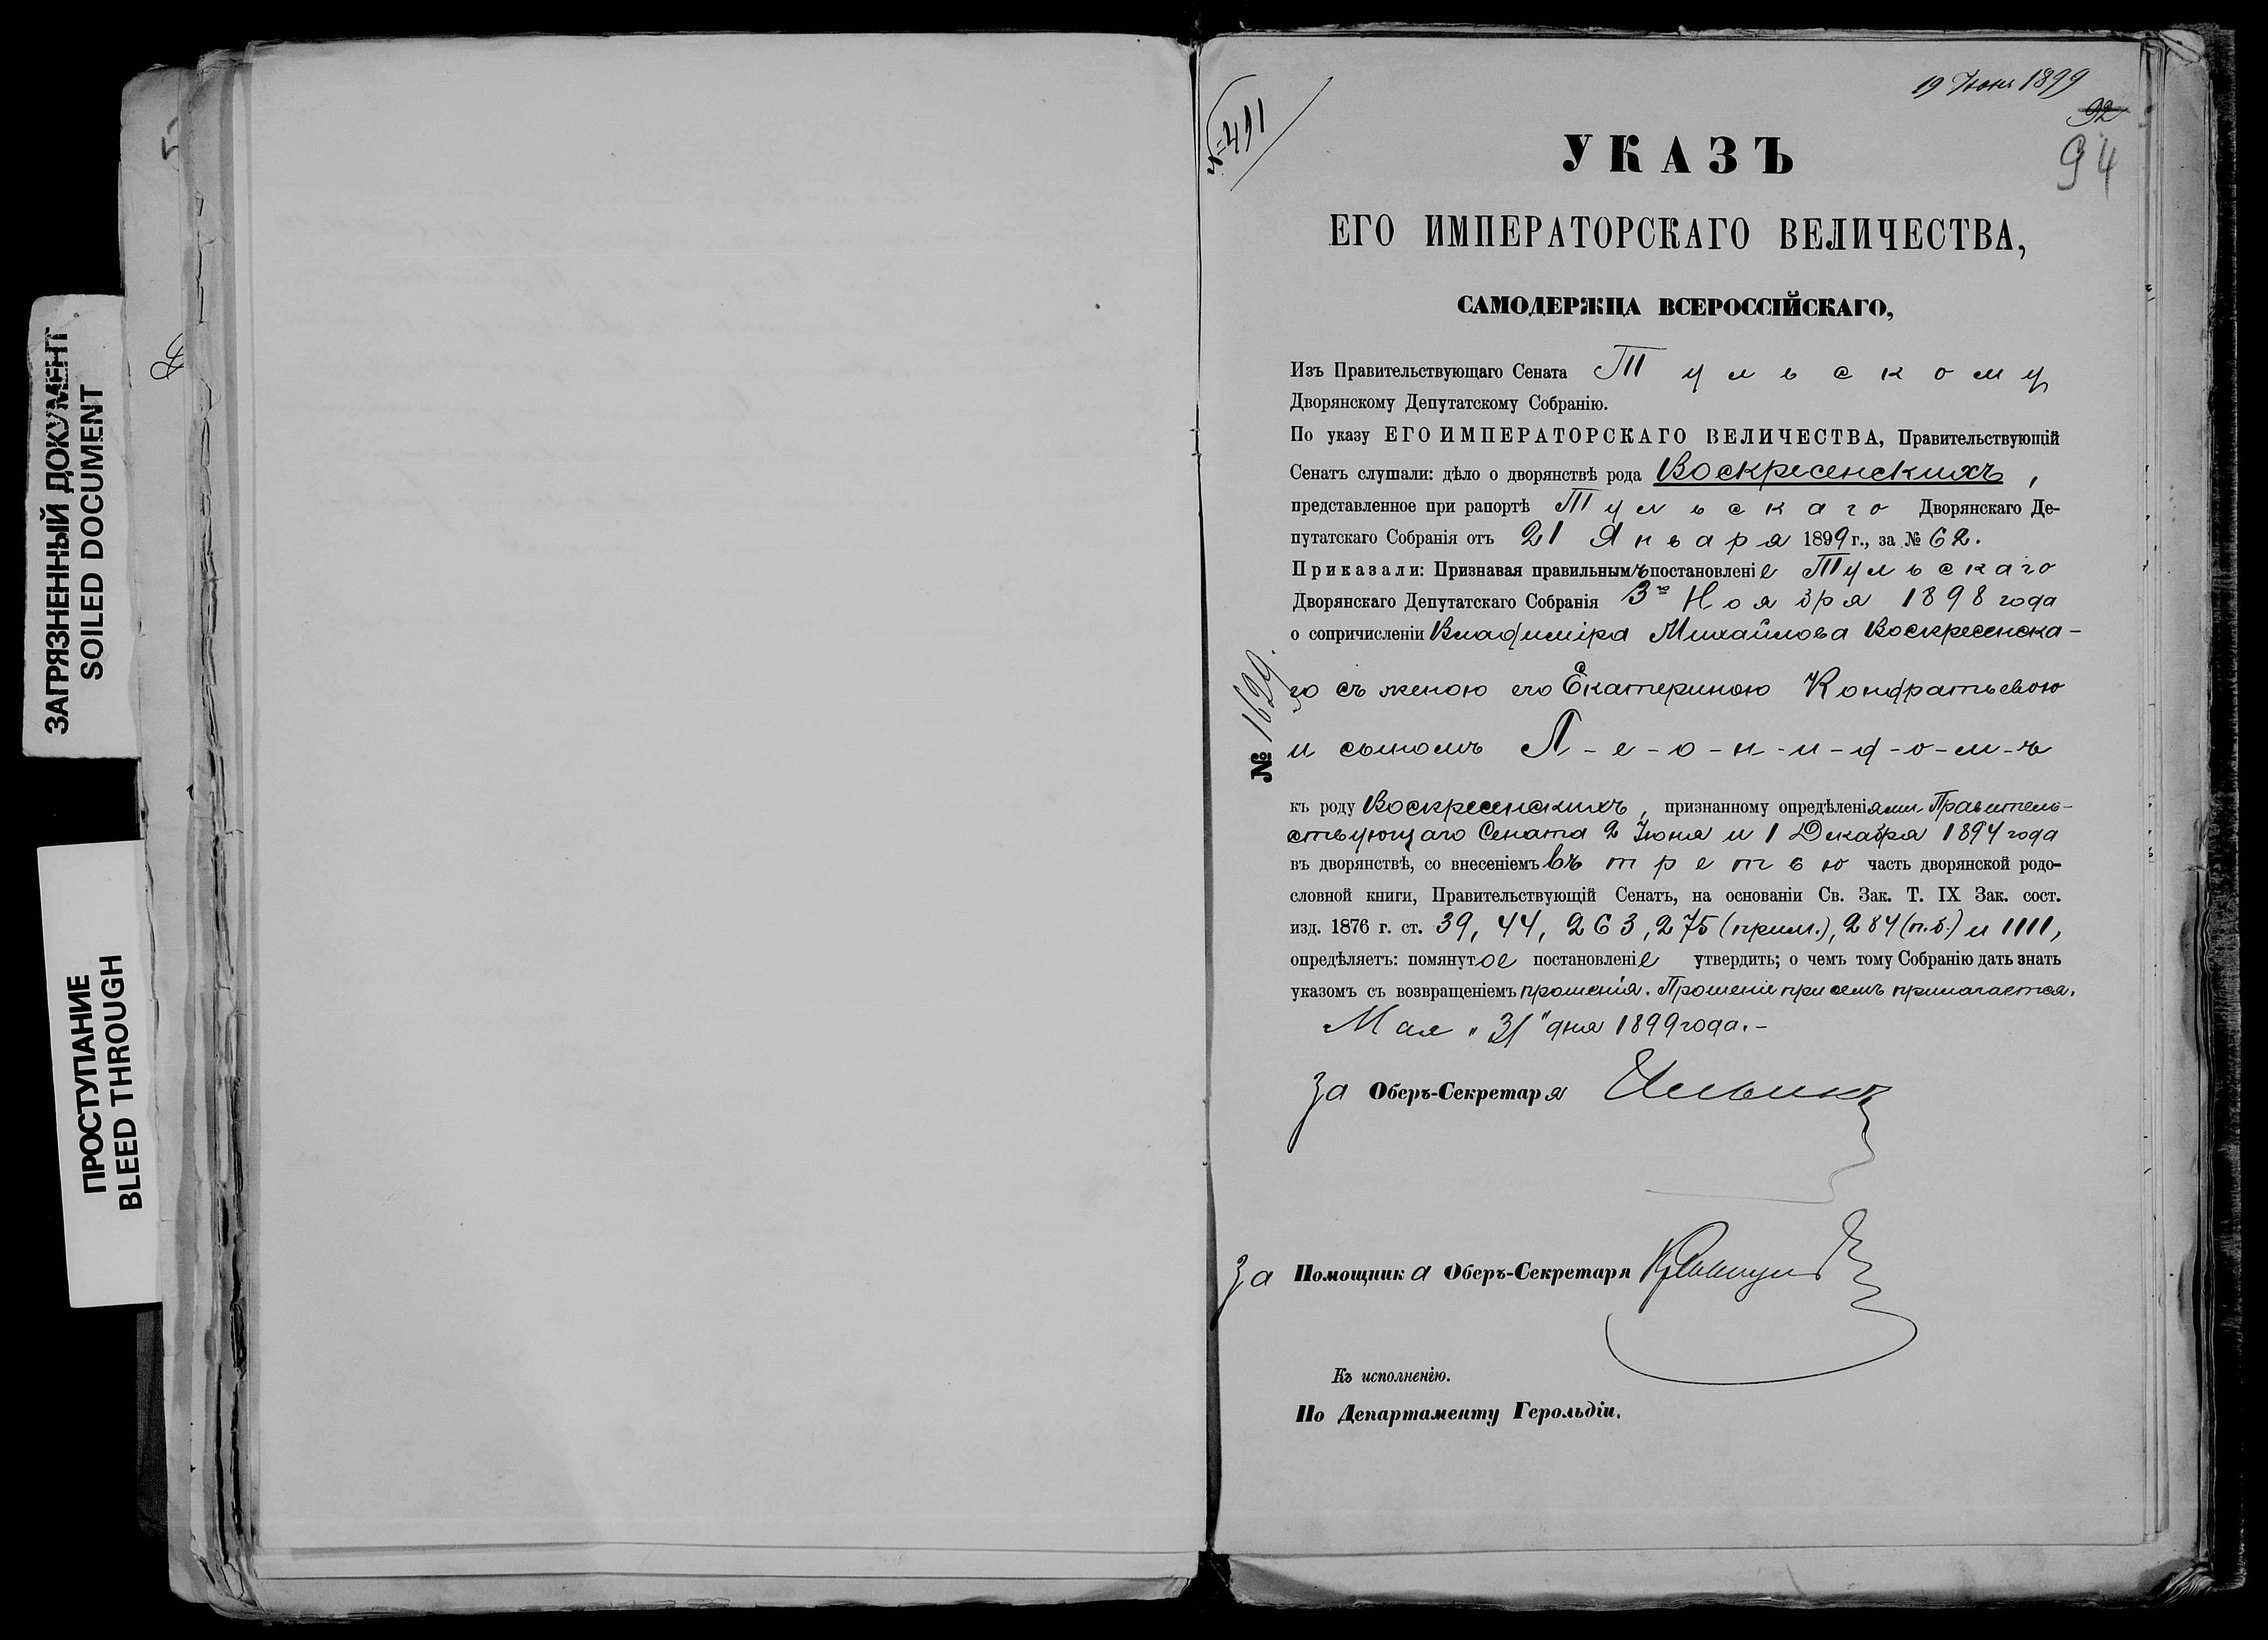 ЗАГРЯЗНЕННЫЙ ДОКУМЕНТ
SOILED DOCUMENT
ПРОСТУПАНИЕ
BLEED THROUGH
19 Іюня 1899
92
94
№ 491
УКАЗЪ
ЕГО ИМПЕРАТОРСКАГО ВЕЛИЧЕСТВА,
САМОДЕРЖЦА ВСЕРОССІЙСКАГО,
Изъ Правительствующаго Сената Тульскому
Дворянскому Депутатскому Собранію.
По указу ЕГО ИМПЕРАТОРСКАГО ВЕЛИЧЕСТВА, Правительствующій
Сенатъ слушали: дѣло о дворянствѣ рода Воскресенскихъ,
представленное при рапортѣ Тульскаго Дворянскаго Де-
путатскаго Собранія отъ 21 Января 1899 г., за № 62.
Приказали: Признавая правильнымъ постановленіе Тульскаго
Дворянскаго Депутатскаго Собранія 3го Ноября 1898 года
о сопричисленіи Владиміра Михайлова Воскресенска-
го съ женою его Екатериною Кондратьевою
и сыномъ Л-е-о-н-и-д-о-м-ъ
№ 1629.
къ роду Воскресенскихъ, признанному опредѣленіями Правитель-
ствующаго Сената 2 Іюня и 1 Декабря 1894 года
въ дворянствѣ, со внесеніемъ въ третью часть дворянской родо-
словной книги, Правительствующій Сенатъ, на основаніи Св. Зак. Т. IX Зак. сост.
изд. 1876 г. ст. 39, 44, 263, 275 (прим.), 284 (п.б.) и 1111,
опредѣляетъ: помянутое постановленіе утвердить; о чемъ тому Собранію дать знать
указомъ съ возвращеніемъ прошенія. Прошеніе при семъ прилагается.
Мая „31" дня 1899 года.-
За Оберъ-Секретаря Ильинъ
За Помощника Оберъ-Секретаря
Къ исполненію.
По Департаменту Герольдіи.